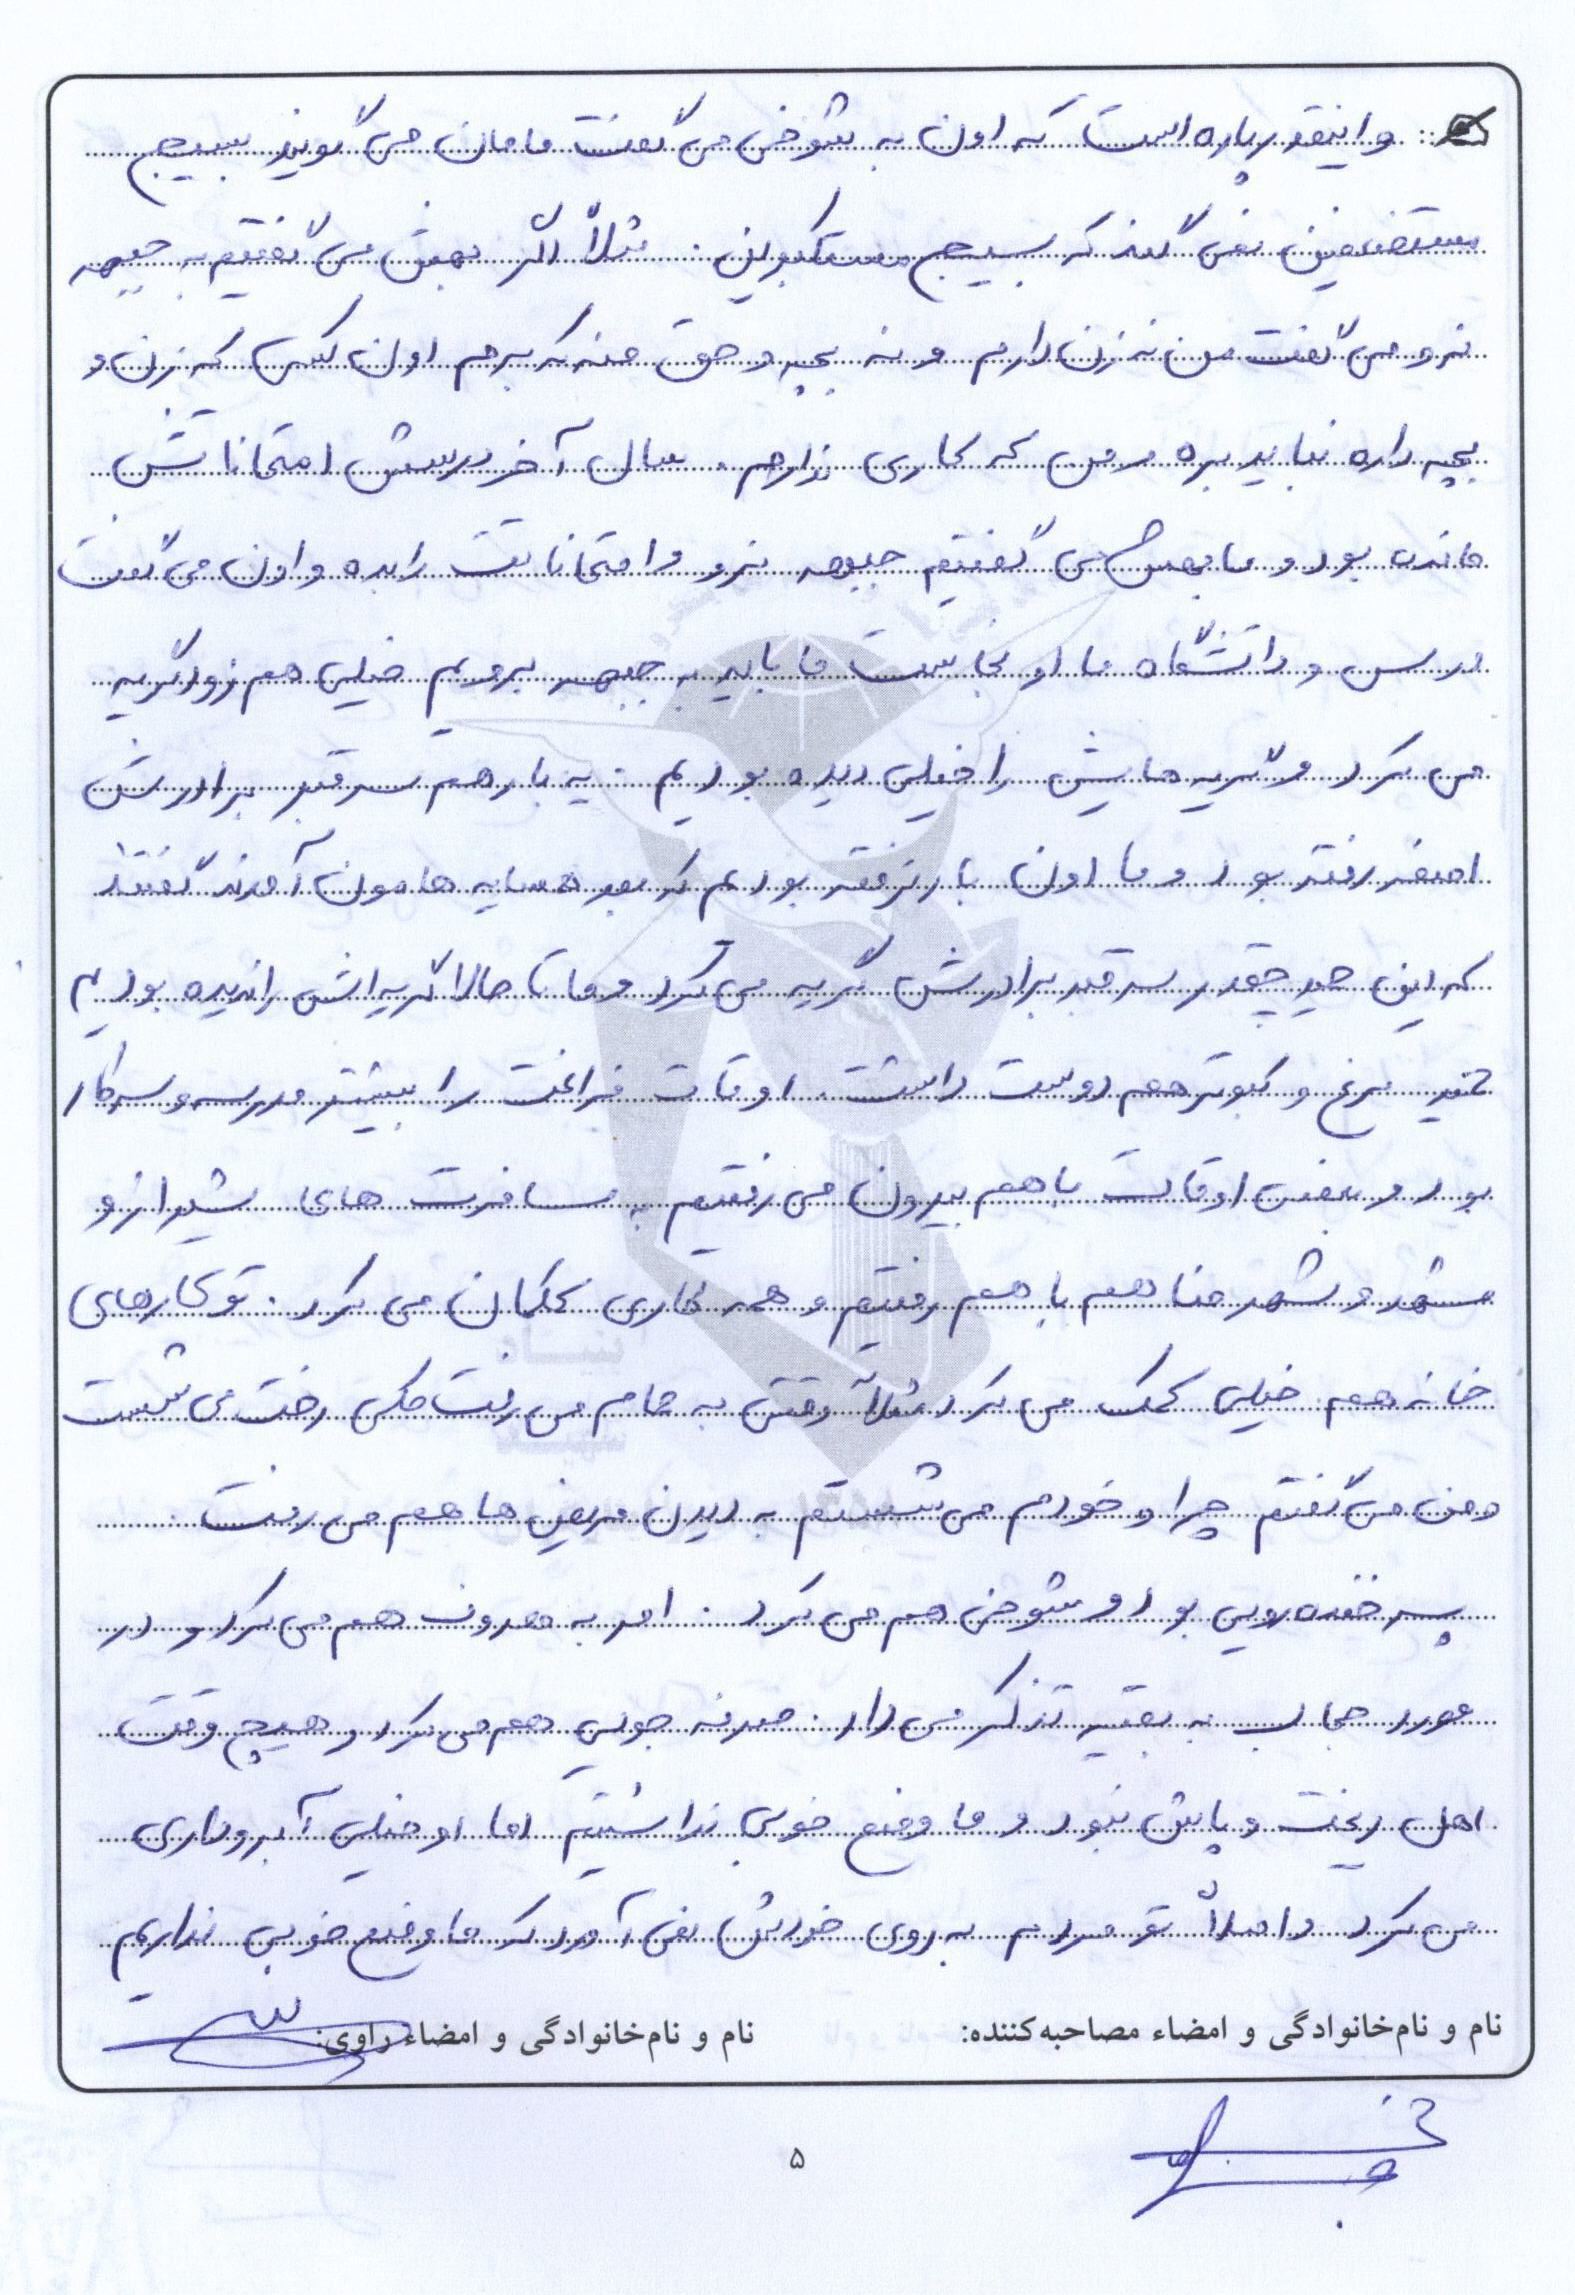 و اینقدر پاره است که اون به شوخی می گفت مامان می گویند بسیج
مستضعفین نمی گند که بسیج مستکبرین. مثلاً اگر بهش می گفتیم به جبهه
نرو می گفت من نه زن دارم و نه بچه و حق منه که برم اون کسی که زن و
بچه داره نباید بره من که کاری ندارم. سال آخر درسش امتحاناتش
مانده بود و ما بهش می گفتیم جبهه نرو و امتحاناتت را بده و اون می گفت
درس و دانشگاه ما اونجاست ما باید به جبهه برویم خیلی هم زود گریه
می کرد و گریه هایش را خیلی دیده بودیم. یه بار هم سر قبر برادرش
اصغر رفته بود و ما اون بار نرفته بودیم که بعد همسایه هامون آمدند گفتند
که این حید چقدر سر قبر برادرش گریه می کرد و ما تا حالا گریه اش را ندیده بودیم
مرغ و کبوتر هم دوست داشت. اوقات فراغت را بیشتر مدرسه و سر کار
بود و بعضی اوقات با هم بیرون می رفتیم به مسافرت های شیراز و
مشهد و شهر رضا هم با هم رفتیم و همه کاری کمکمان می کرد. تو کارهای
خانه هم خیلی کمک می کرد مثلاً وقتی به حمام می رفت رخت می شست
و من می گفتم چرا و خودم می شستم به دیدن مریض ها هم می رفت.
پسر خنده رویی بود و شوخی هم می کرد. امر به معروف هم می کرد و در
مورد حجاب به بقیه تذکر می داد. صرفه جویی هم می کرد و هیچ وقت
اهل ریخت و پاش نبود و ما وضع خوبی نداشتیم اما او خیلی آبروداری
می کرد و اصلاً تو مردم به روی خودش نمی آورد که ما وضع خوبی نداریم
نام و نام‌خانوادگی و امضاء مصاحبه‌کننده: نام و نام‌خانوادگی و امضاء راوی:
۵